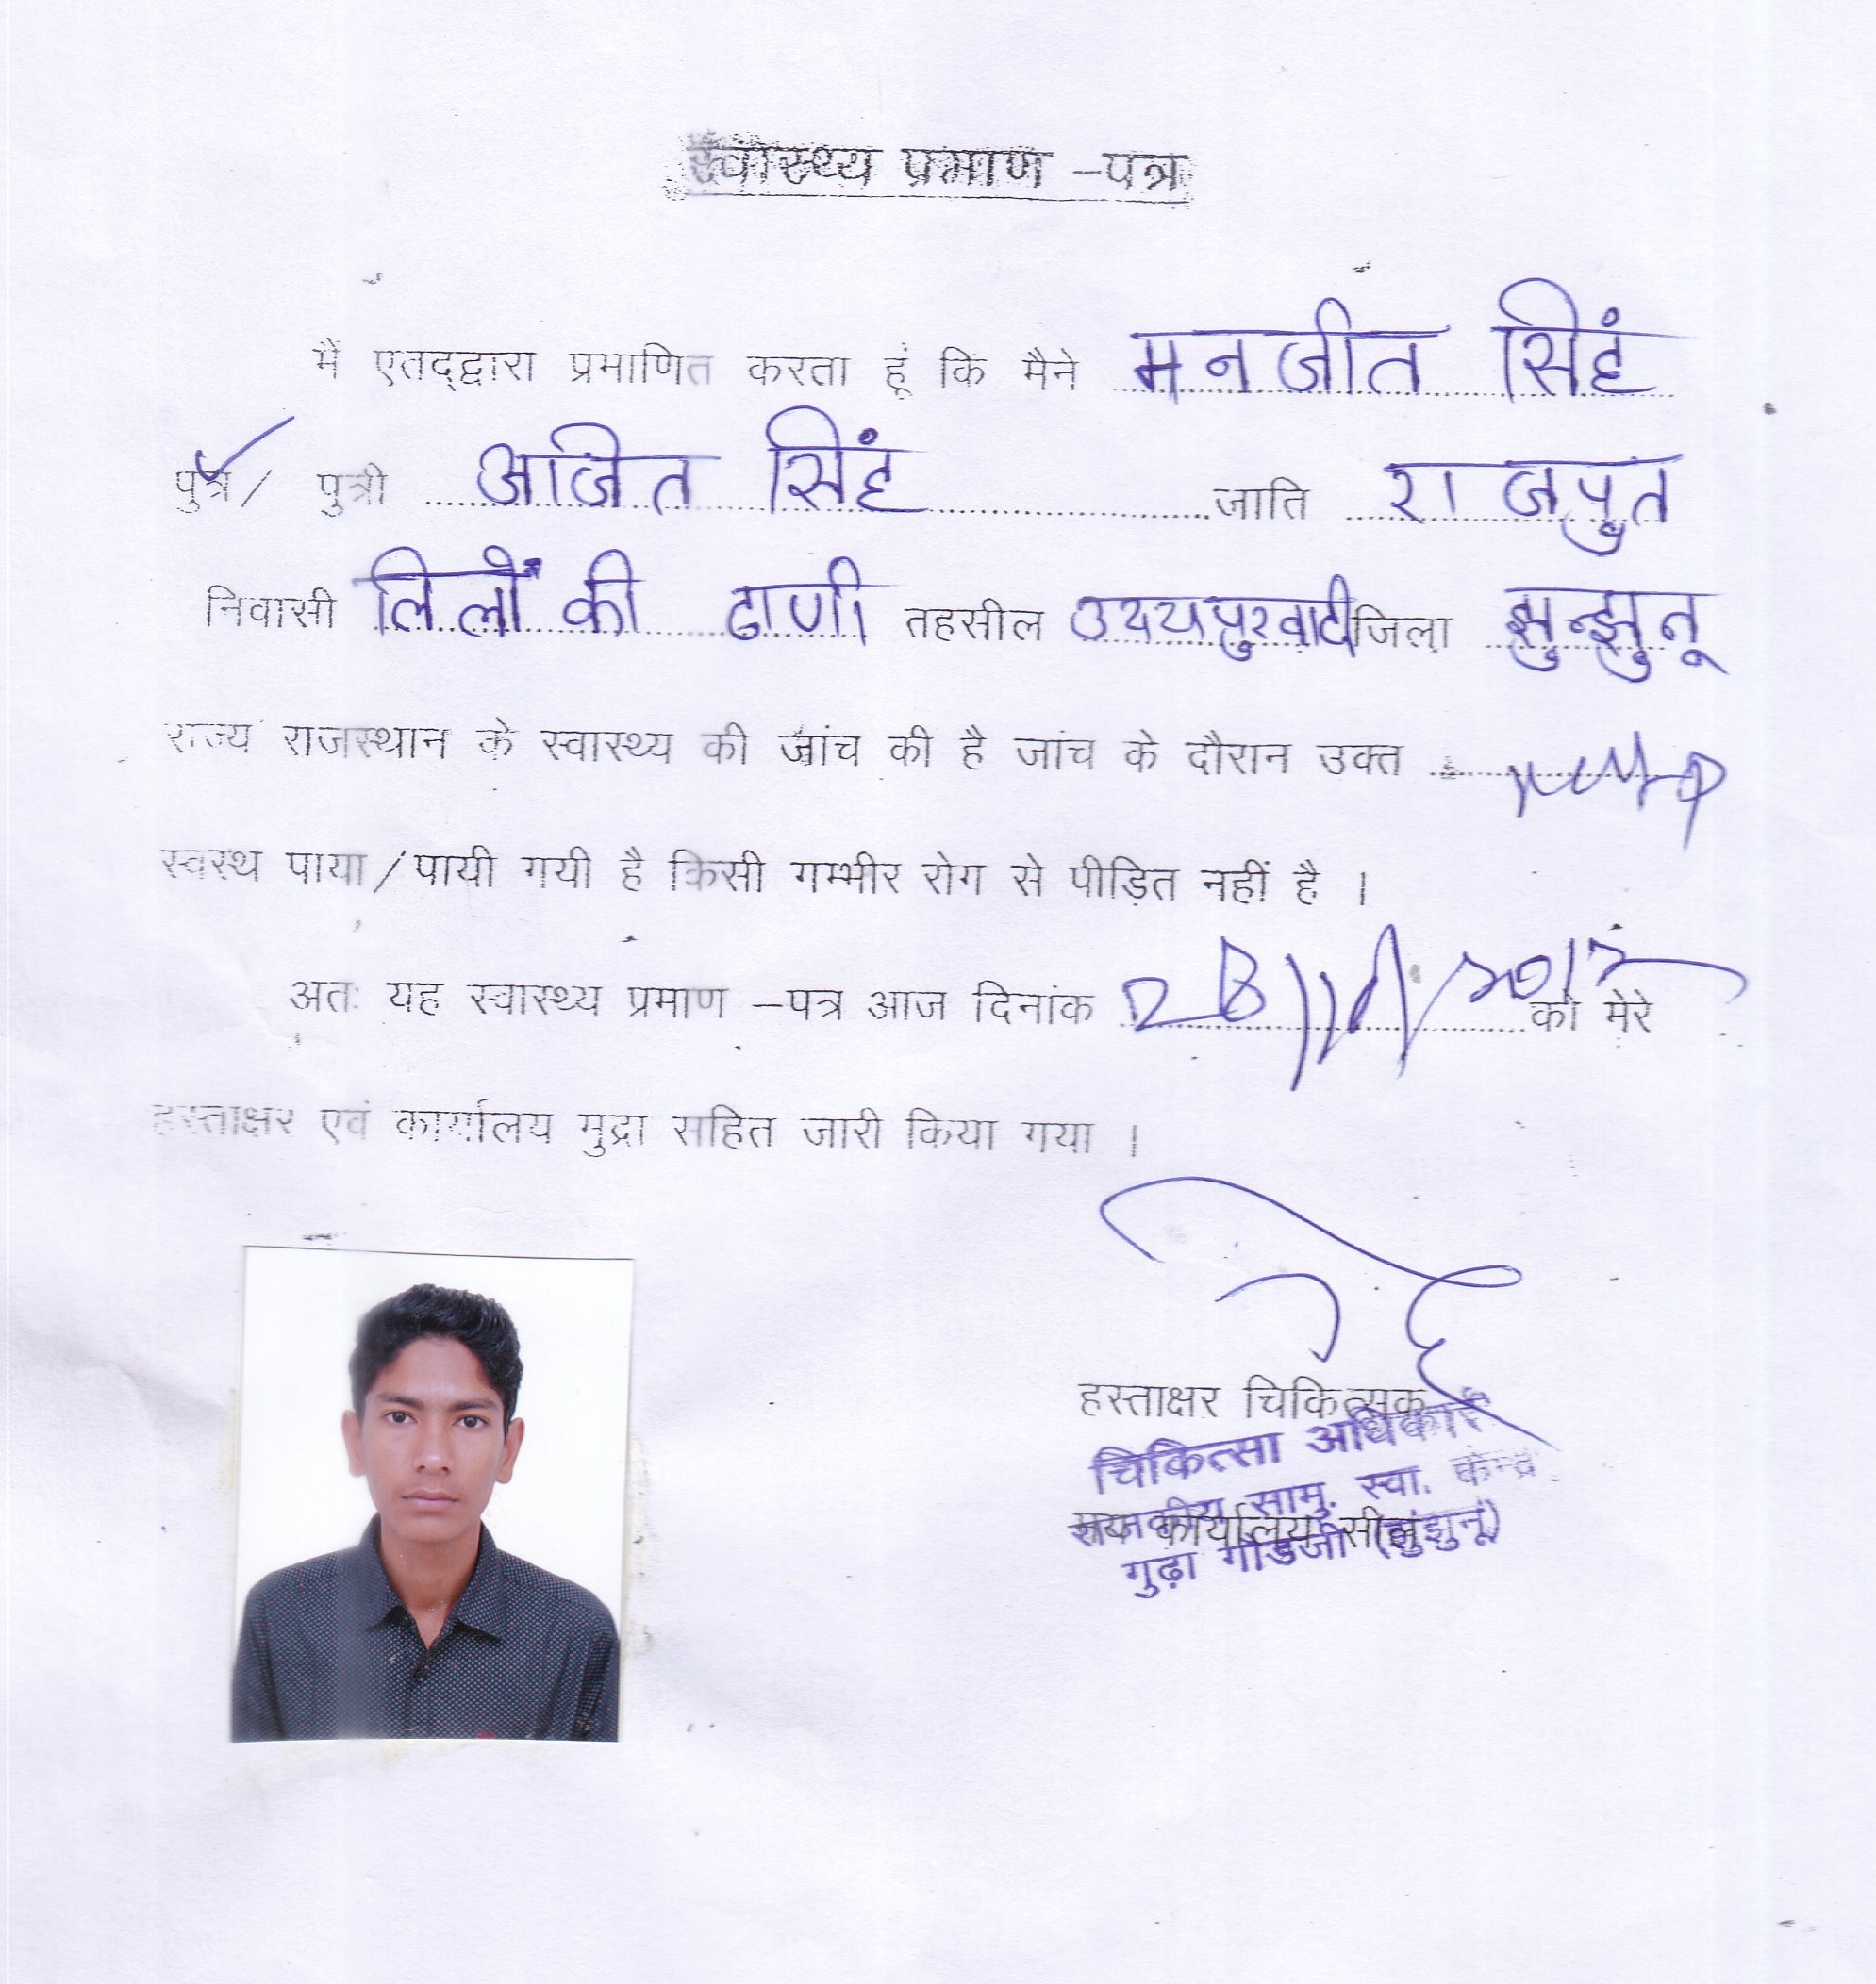 स्वास्थ्य प्रमाण –पत्र
मैं एतद्द्वारा प्रमाणित करता हूं कि मैने मनजीत सिहं
पुत्र / पुत्री अजित सिंह जाति राजपुत
निवासी लिलों की ढाणी तहसील उदयपुरवाटी जिला झुन्झुनू
राज्य राजस्थान के स्वास्थ्य की जांच की है जांच के दौरान उक्त
स्वस्थ पाया/पायी गयी है किसी गम्भीर रोग से पीड़ित नहीं है ।
अतः यह स्वास्थ्य प्रमाण –पत्र आज दिनांक को मेरे
हस्ताक्षर एवं कार्यालय मुद्रा सहित जारी किया गया ।
हस्ताक्षर चिकित्सक
चिकित्सा अधिकारी
राजकीय सामु. स्वा. केन्द्र
मय कार्यालय सील
गुढ़ा गौडजी (झुंझुनूं)